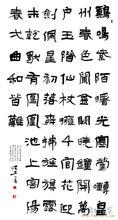 雞鳴紫陌曙光寒鶯囀皇
州春色闌金闕曉鐘開萬
戶玉階仙仗擁千官花迎
劍佩星初落柳拂旌旗露
未乾獨有鳳凰池上客陽
春一曲和皆難